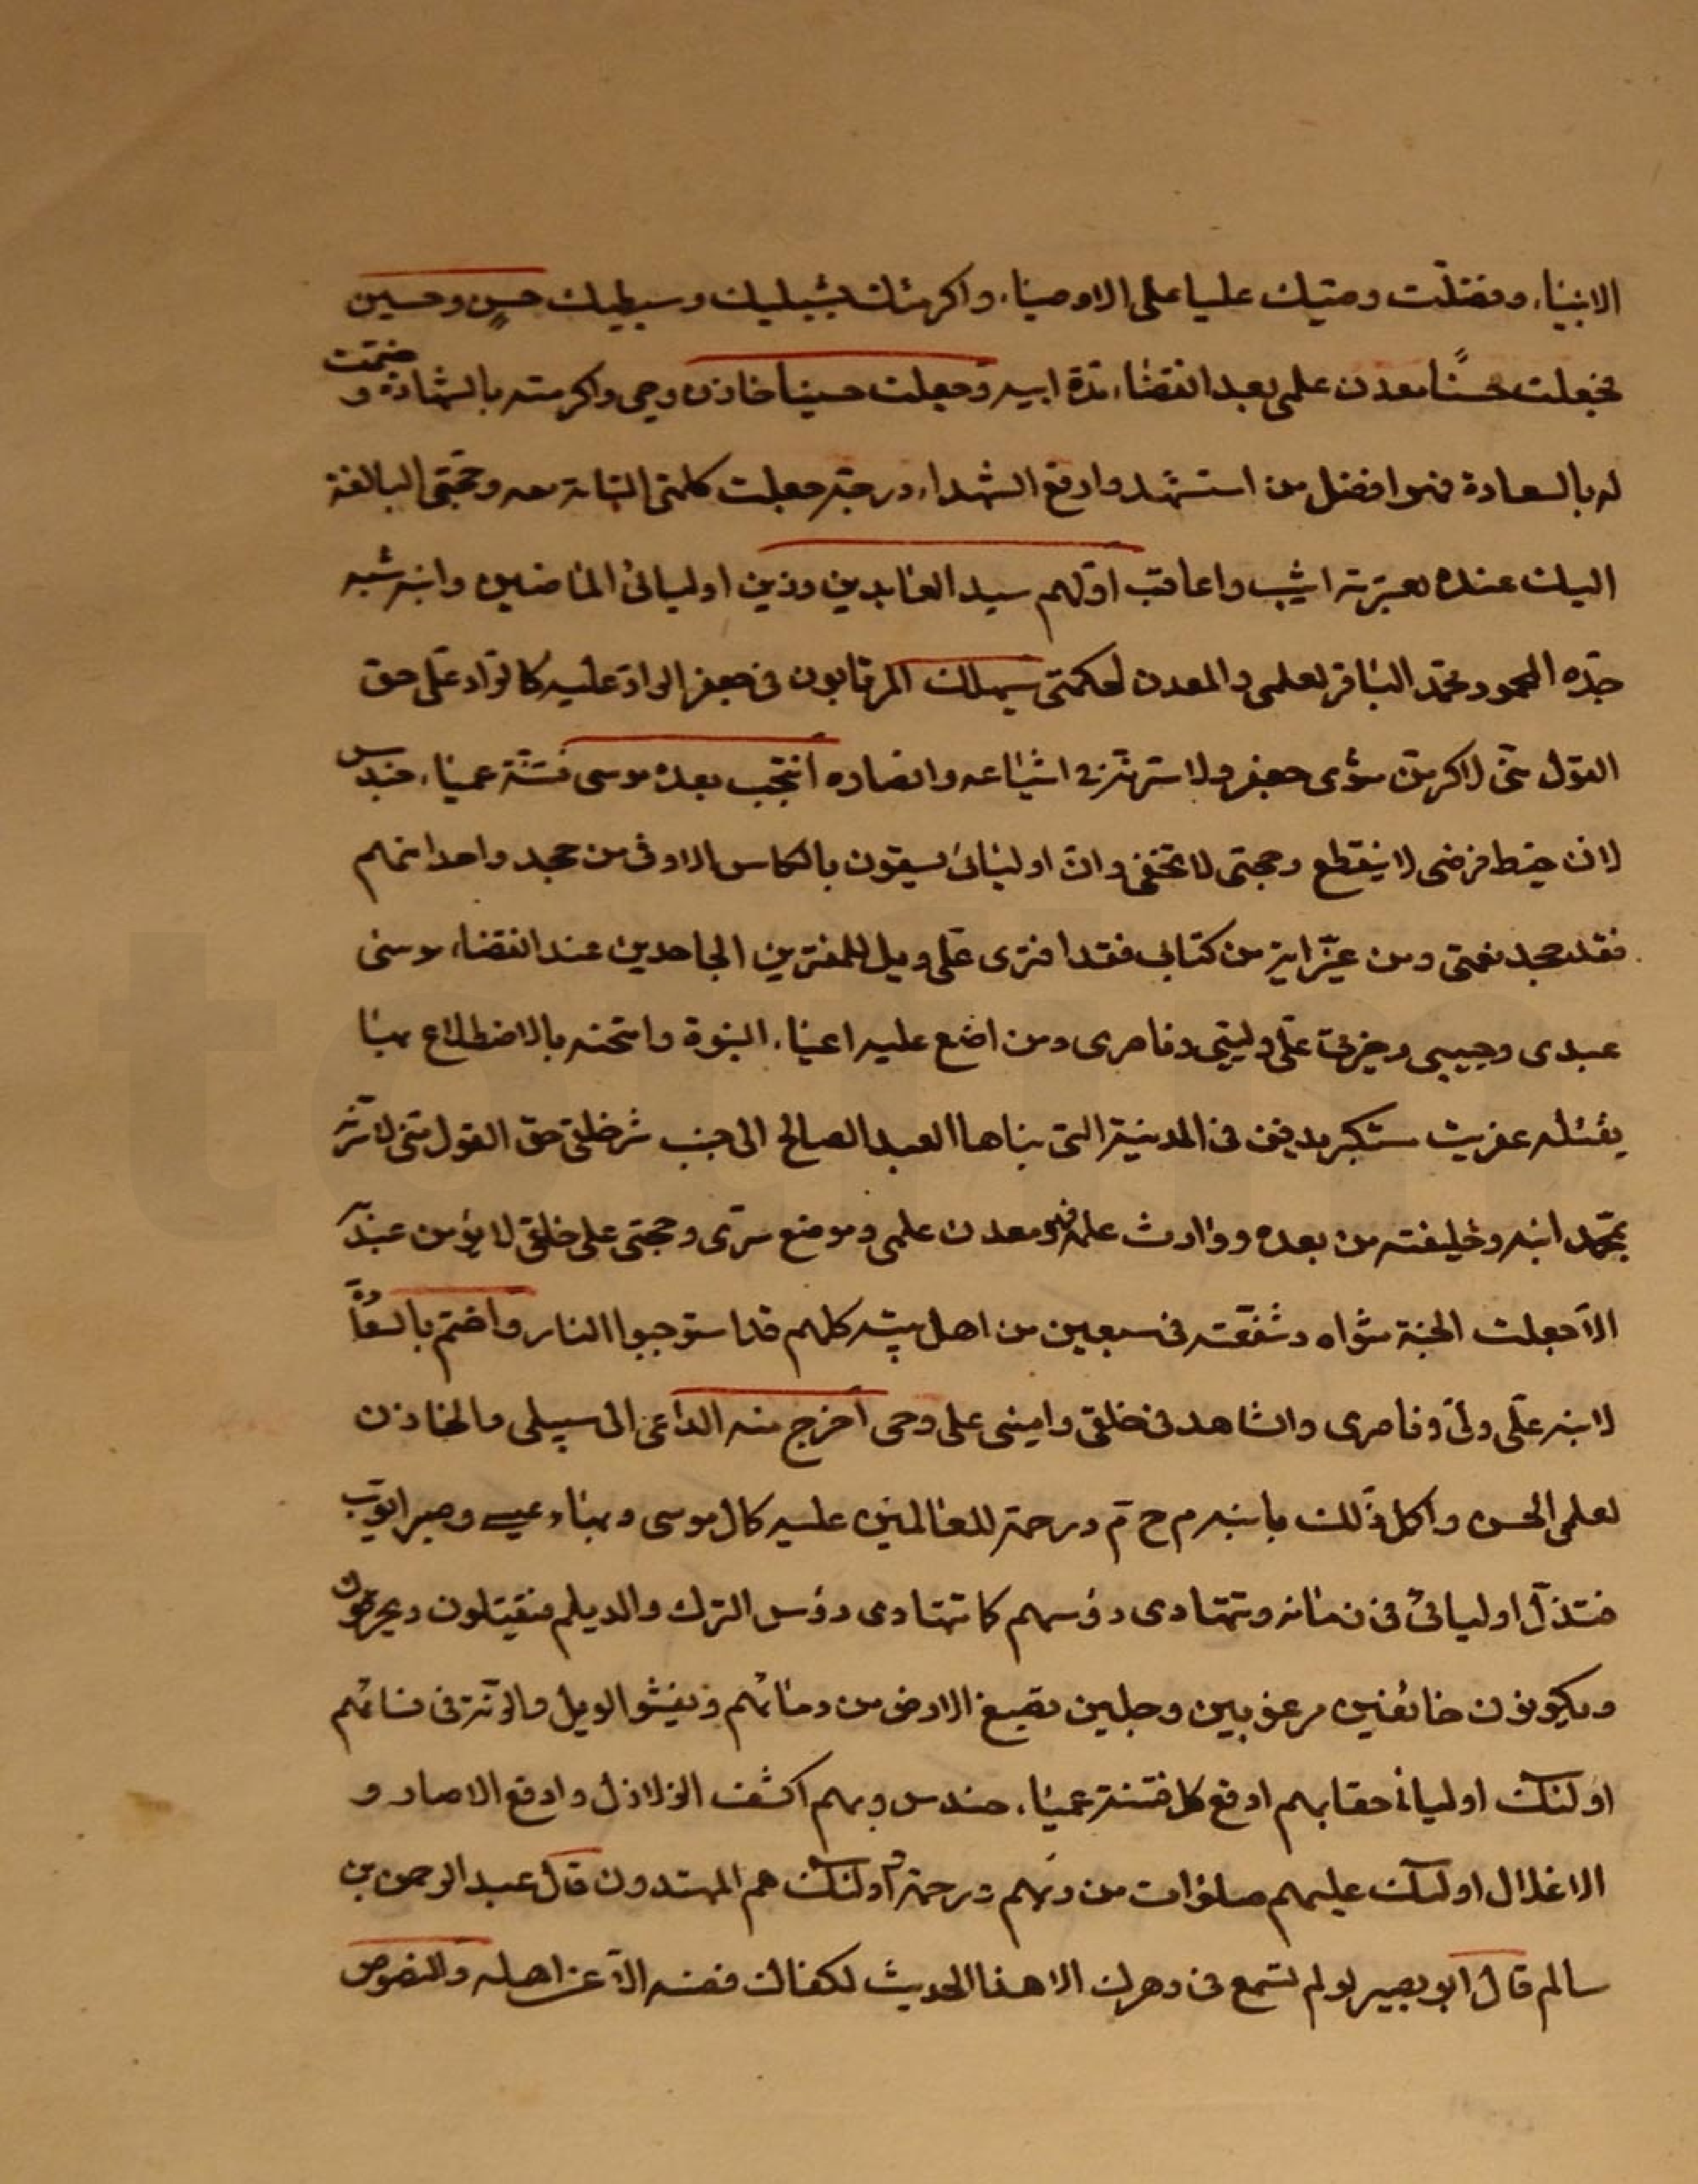 الانبياء، وفضلت وصيك عليا على الاوصياء، واكرمتك بشبليك وسبطيك حسن وحسين
فجعلت حسنًا معدن علمى بعد انقضاء مدة ابيه وجعلت حسينا خازن وحى واكرمته بالشهادة و ختمت
له بالسعادة فهو افضل من استشهد وارفع الشهداء درجة جعلت كلمتى التامة معه وحجتى البالغة
اليك عنده بعترته اثيب واعاقب اولهم سيد العابدين وزين اوليائى الماضين وابنه شبه
جدّه المحمود محمّد الباقر لعلمى والمعدن لحكمتى سيهلك المرتابون فى جعفر الراد عليه كالرّاد علىّ حق
القول منّى لاكرمن مثوى جعفر ولاسرنّه فى اشياعه وانصاره انتجب بعده موسى فتنة عمياء، حندس
لان خيط فرضى لا ينقطع وحجتى لا تخفى وانّ اوليائى يسقون بالكاس الاوفى من جحد واحدا منهم
فقد جحد نعمتى ومن غيّر اية من كتابى فقد افترى علىّ ويل للمفترين الجاحدين عند انقضاء موسى
عبدى وحبيبى وخيرتى علىّ وليّى وناصرى ومن اضع عليه اعباء، النبوة وامتحنه بالاضطلاع بها
يقتله عفريت مستكبر يدفن فى المدينة التى بناها العبد الصالح الى جنب شر خلقى حق القول منّى لاسرّنّه
بمحمّد ابنه وخليفته من بعده ووارث علمه فهو معدن علمى وموضع سرّى وحجتى على خلقى لا يؤمن عبد به
الاّ جعلت الجنة مثواه وشفّعته فى سبعين من اهل بيته كلهم قد استوجبوا النار واختم بالسعادة
لابنه علّى ولىّ وناصرى والشاهد فى خلقى وامينى على وحى اخرج منه الداعى الى سبيلى والخازن
لعلمى الحسن واكمل ذلك بابنه م ح م د رحمة للعالمين عليه كمال موسى وبهاء عيسے وصبر ايوّب
فتذلّ اوليائى فى زمانه وتتهادى رؤسهم كما تتهادى رؤس الترك والديلم فيقتلون ويحرقون
ويكونون خائفين مرعوبين وجلين تصبغ الارض من دمائهم ويفشو الويل والرنّة فى نسائهم
اولئك اوليائى حقا بهم ادفع كل فتنة عمياء، حندس وبهم اكشف الزلازل وادفع الاصار و
الاغلال اولئك عليهم صلوات من ربهم ورحمة واولئك هم المهتدون قال عبد الرحمن بن
سالم قال ابو بصير لو لم تسمع فى دهرك الا هذا الحديث لكفاك فصنه الاّ عن اهله والنصوص